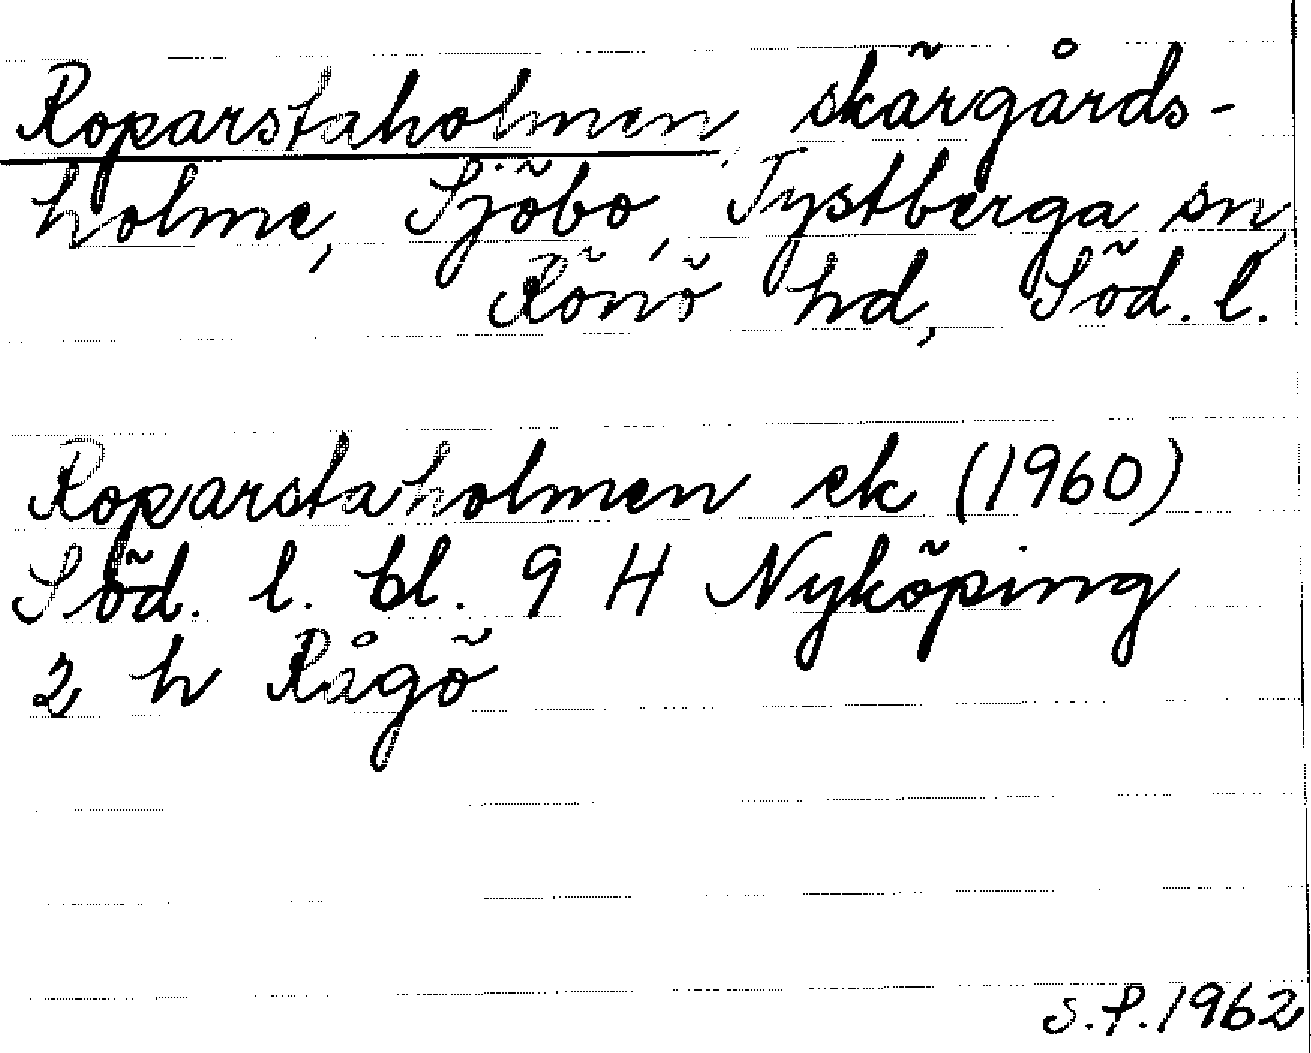 Roparstaholmen, skärgårds-
holme, Sjöbo, Tystberga sn,
Rönö hd, Söd. l.
Roparstaholmen ek (1960)
Söd. l. bl. 9 H Nyköping
2 h Rågö
S.P. 1962